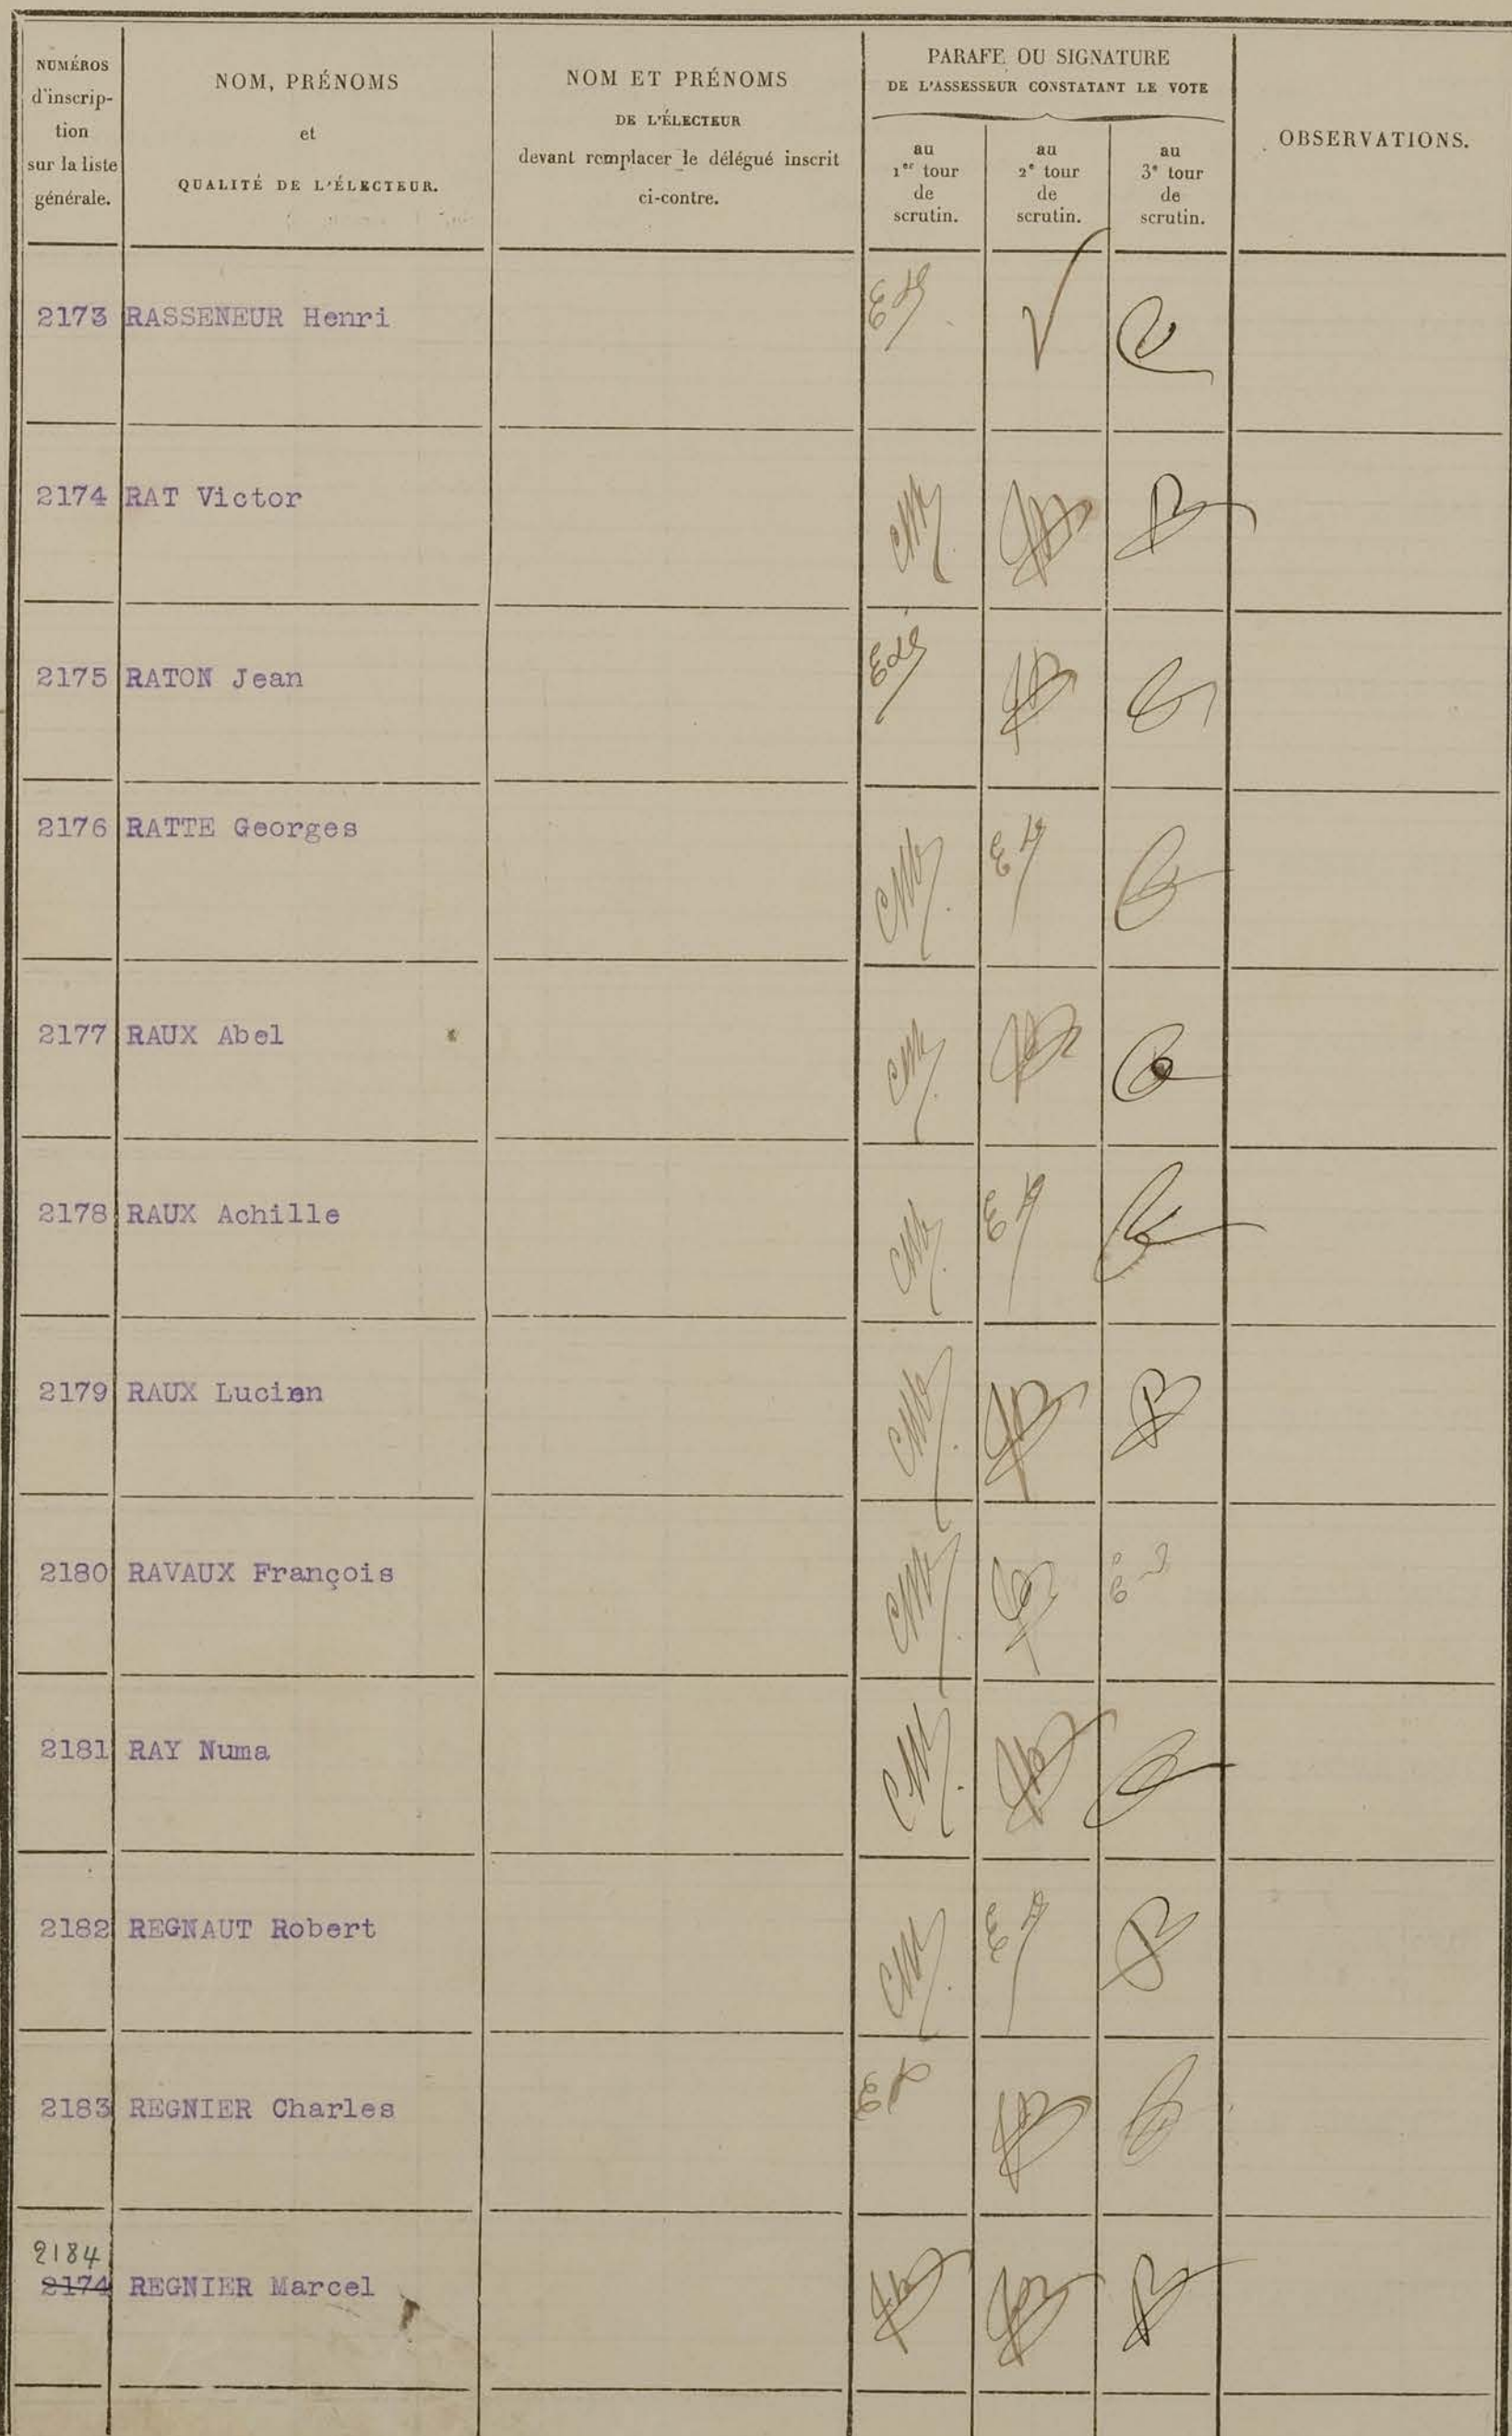 NUMÉROS
d'inscrip-
tion
sur la liste
générale.
NOM, PRÉNOMS
et
QUALITÉ DE L'ÉLECTEUR.
NOM ET PRÉNOMS
DE L'ÉLECTEUR
devant remplacer le délégué inscrit
ci-contre.
PARAFE OU SIGNATURE
DE L'ASSESSEUR CONSTATANT LE VOTE
au
1er tour
de
scrutin.
au
2e tour
de
scrutin.
au
3e tour
de
scrutin.
OBSERVATIONS.
2173 RASSENEUR Henri
2174 RAT Victor
2175 RATON Jean
2176 RATTE Georges
2177 RAUX Abel
2178 RAUX Achille
2179 RAUX Lucien
2180 RAVAUX François
2181 RAY Numa
2182 REGNAUT Robert
2183 REGNIER Charles
2184
2174 REGNIER Marcel